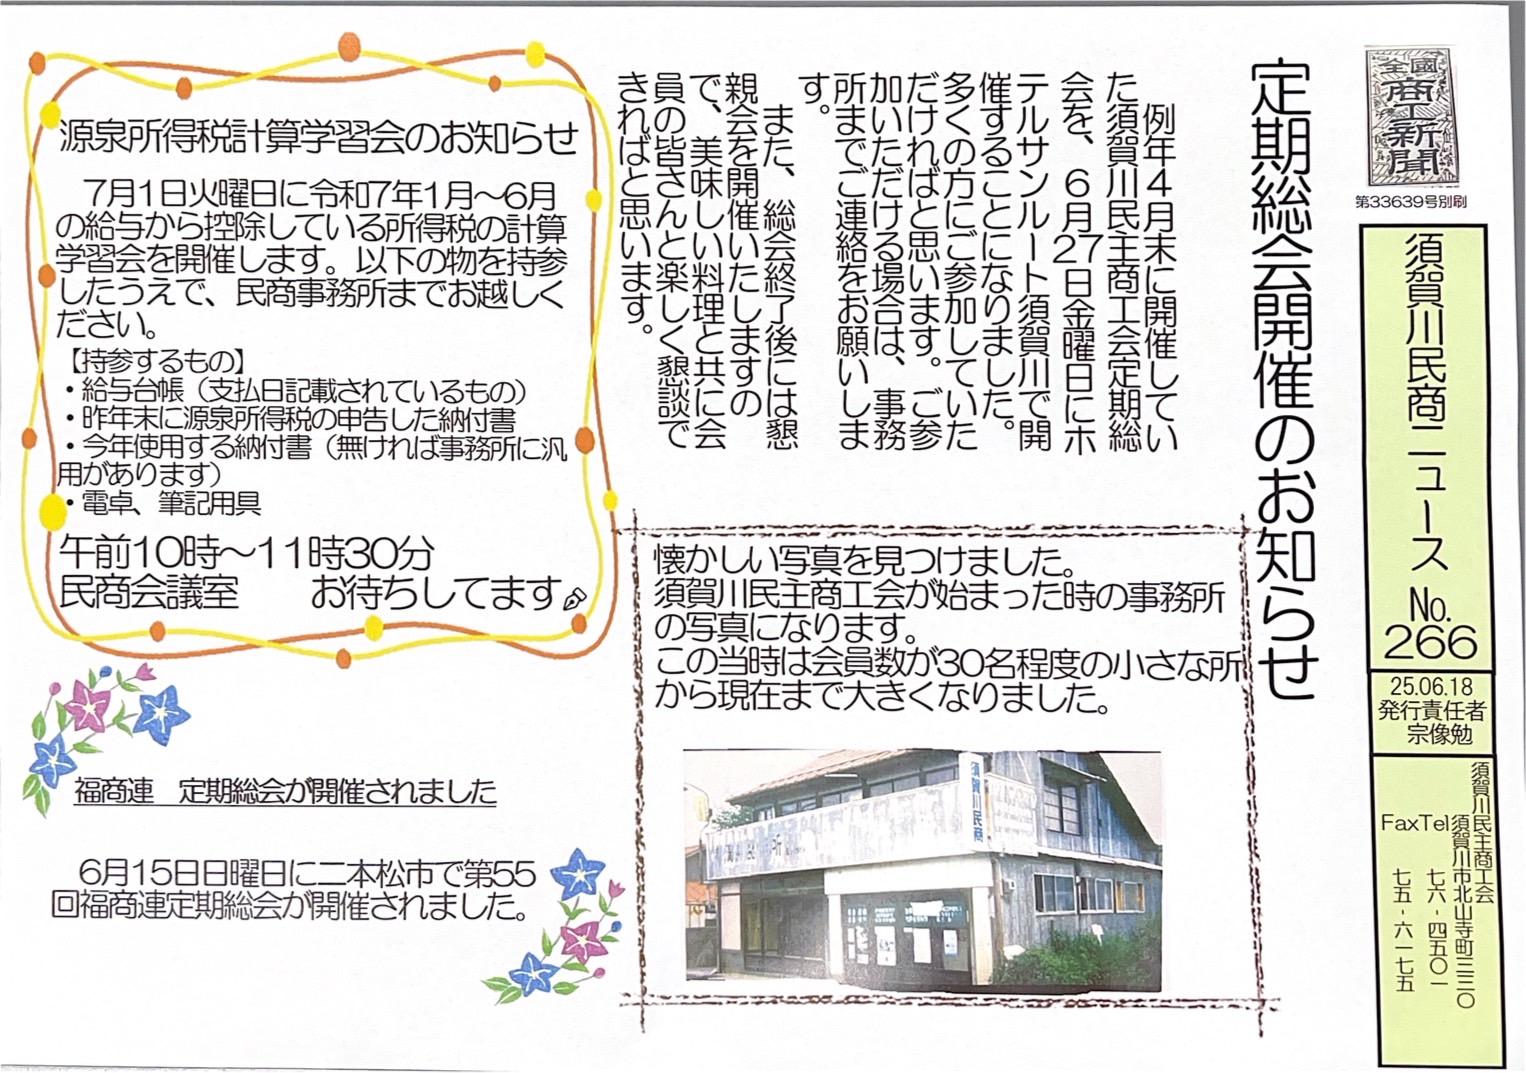 全國
商工新聞
第33639号別刷
須賀川民商ニュース No.266
25.06.18
発行責任者
宗像勉
須賀川民主商工会
須賀川市北山寺町三三〇
Tel 七六-四五〇一
Fax 七五-六一七五
定期総会開催のお知らせ
例年4月末に開催してい
た須賀川民主商工会定期総
会を、6月27日金曜日にホ
テルサンルート須賀川で開
催することになりました。
多くの方にご参加していた
だければと思います。ご参
加いただける場合は、事務
所までご連絡をお願いしま
す。
また、総会終了後には懇
親会を開催いたしますの
で、美味しい料理と共に会
員の皆さんと楽しく懇談で
きればと思います。
懐かしい写真を見つけました。
須賀川民主商工会が始まった時の事務所
の写真になります。
この当時は会員数が30名程度の小さな所
から現在まで大きくなりました。
須賀川民商
源泉所得税計算学習会のお知らせ
7月1日火曜日に令和7年1月～6月
の給与から控除している所得税の計算
学習会を開催します。以下の物を持参
したうえで、民商事務所までお越しく
ださい。
【持参するもの】
・給与台帳（支払日記載されているもの）
・昨年末に源泉所得税の申告した納付書
・今年使用する納付書（無ければ事務所に汎
用があります）
・電卓、筆記用具
午前10時～11時30分
民商会議室 お待ちしてます
福商連 定期総会が開催されました
6月15日日曜日に二本松市で第55
回福商連定期総会が開催されました。